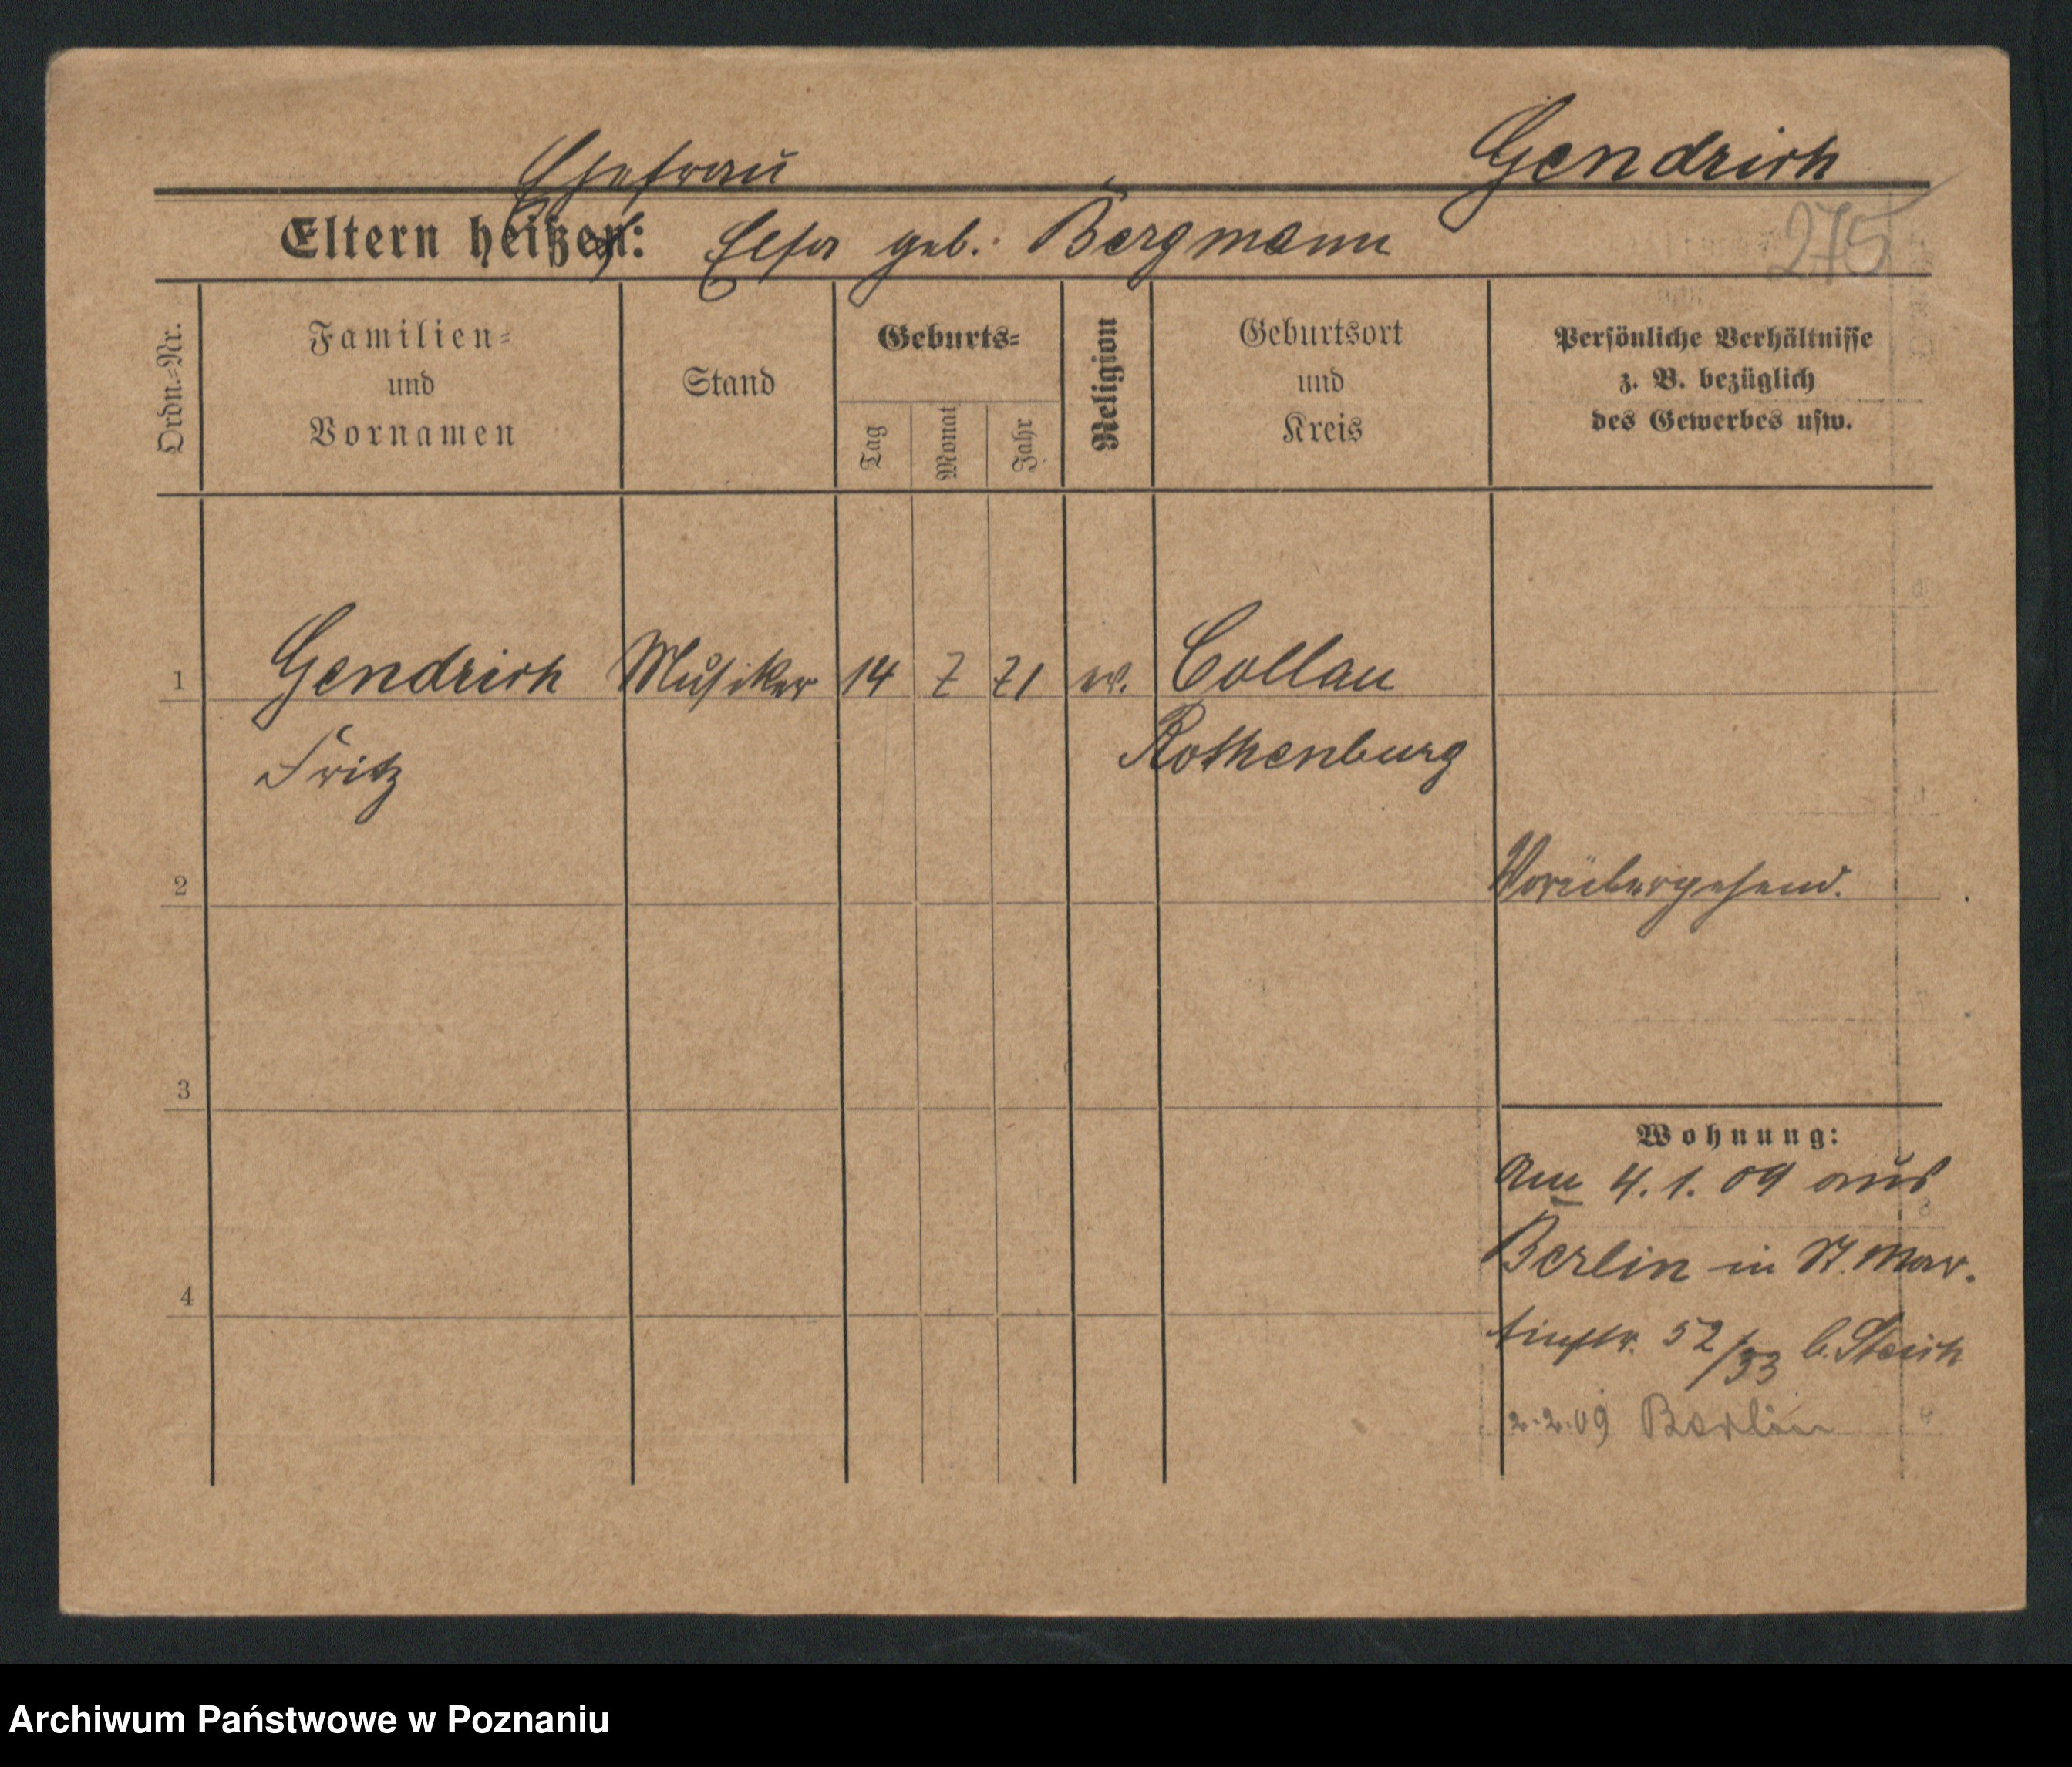 Ehefrau Gendrich
Eltern heißen: Elsa geb. Bergmann
275
Ordn.=Nr.
Familien=
und
Vornamen
Stand
Geburts=
Tag
Monat
Jahr
Religion
Geburtsort
und
Kreis
Persönliche Verhältnisse
z. B. bezüglich
des Gewerbes usw.
1 Gendrich Musiker 14 7 71 ev. Collau
Fritz Rothenburg
2 Vorübergehend.
3
Wohnung:
Am 4.1.09 aus
Berlin in St. Mar.
4
tinstr. 52/53 b. Steich
2.2.09 Berlin
Archiwum Państwowe w Poznaniu